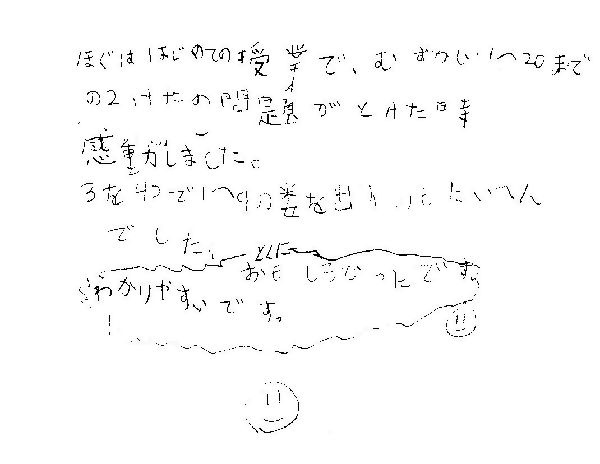 ぼくははじめての授業で、むずかしい1〜20まで
の2けたの問題がとけた時
感動がしました。
3を4つで1〜9の差を出すのもたいへん
でした。
とくに
おもしろかったです。
わかりやすいです。